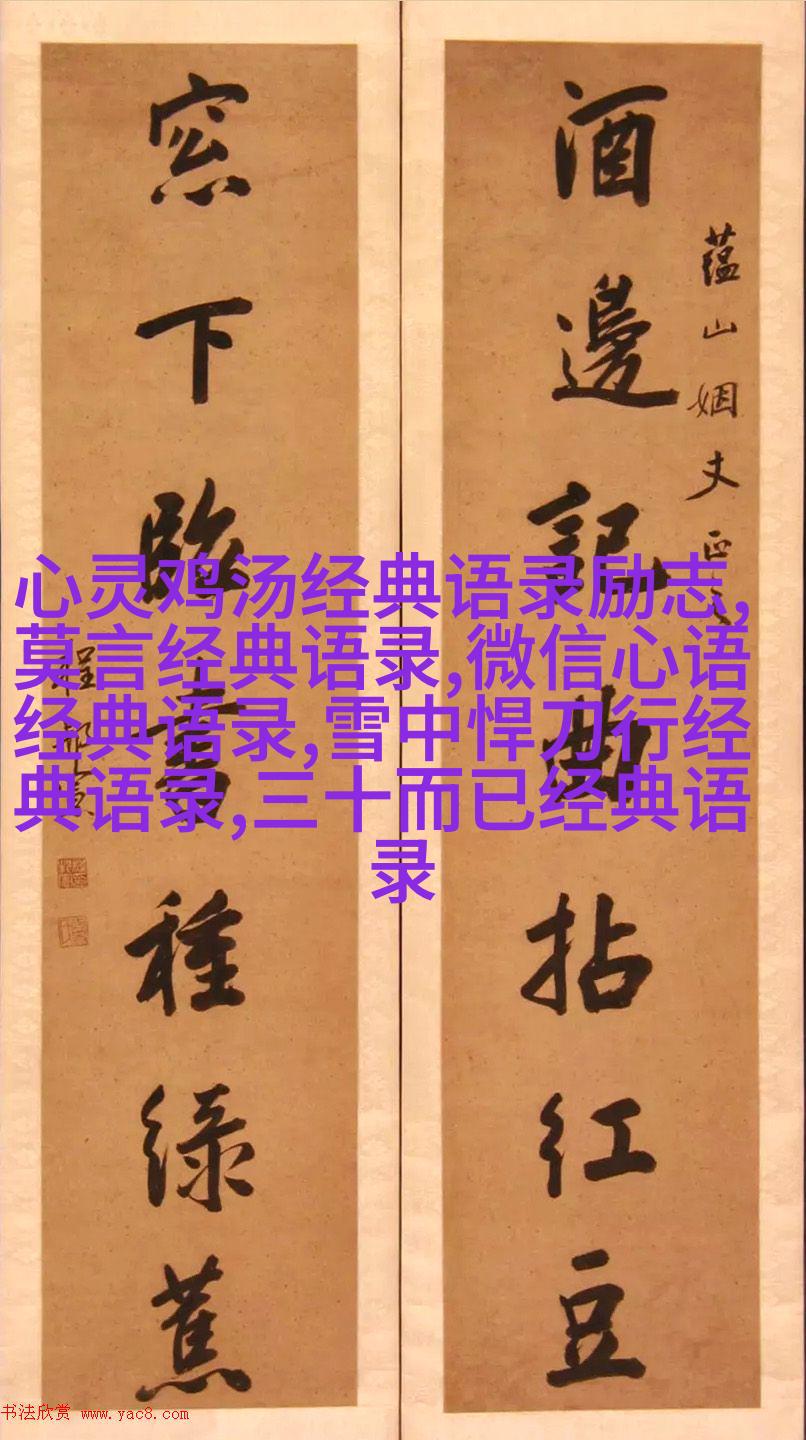 蘊山姻丈正之
酒邊記曲拈紅豆
窓下臨書種綠蕉
程
心灵鸡汤经典语录励志,
莫言经典语录,微信心语
经典语录,雪中悍刀行经
典语录,三十而已经典语
录
书法欣赏 www.yac8.com